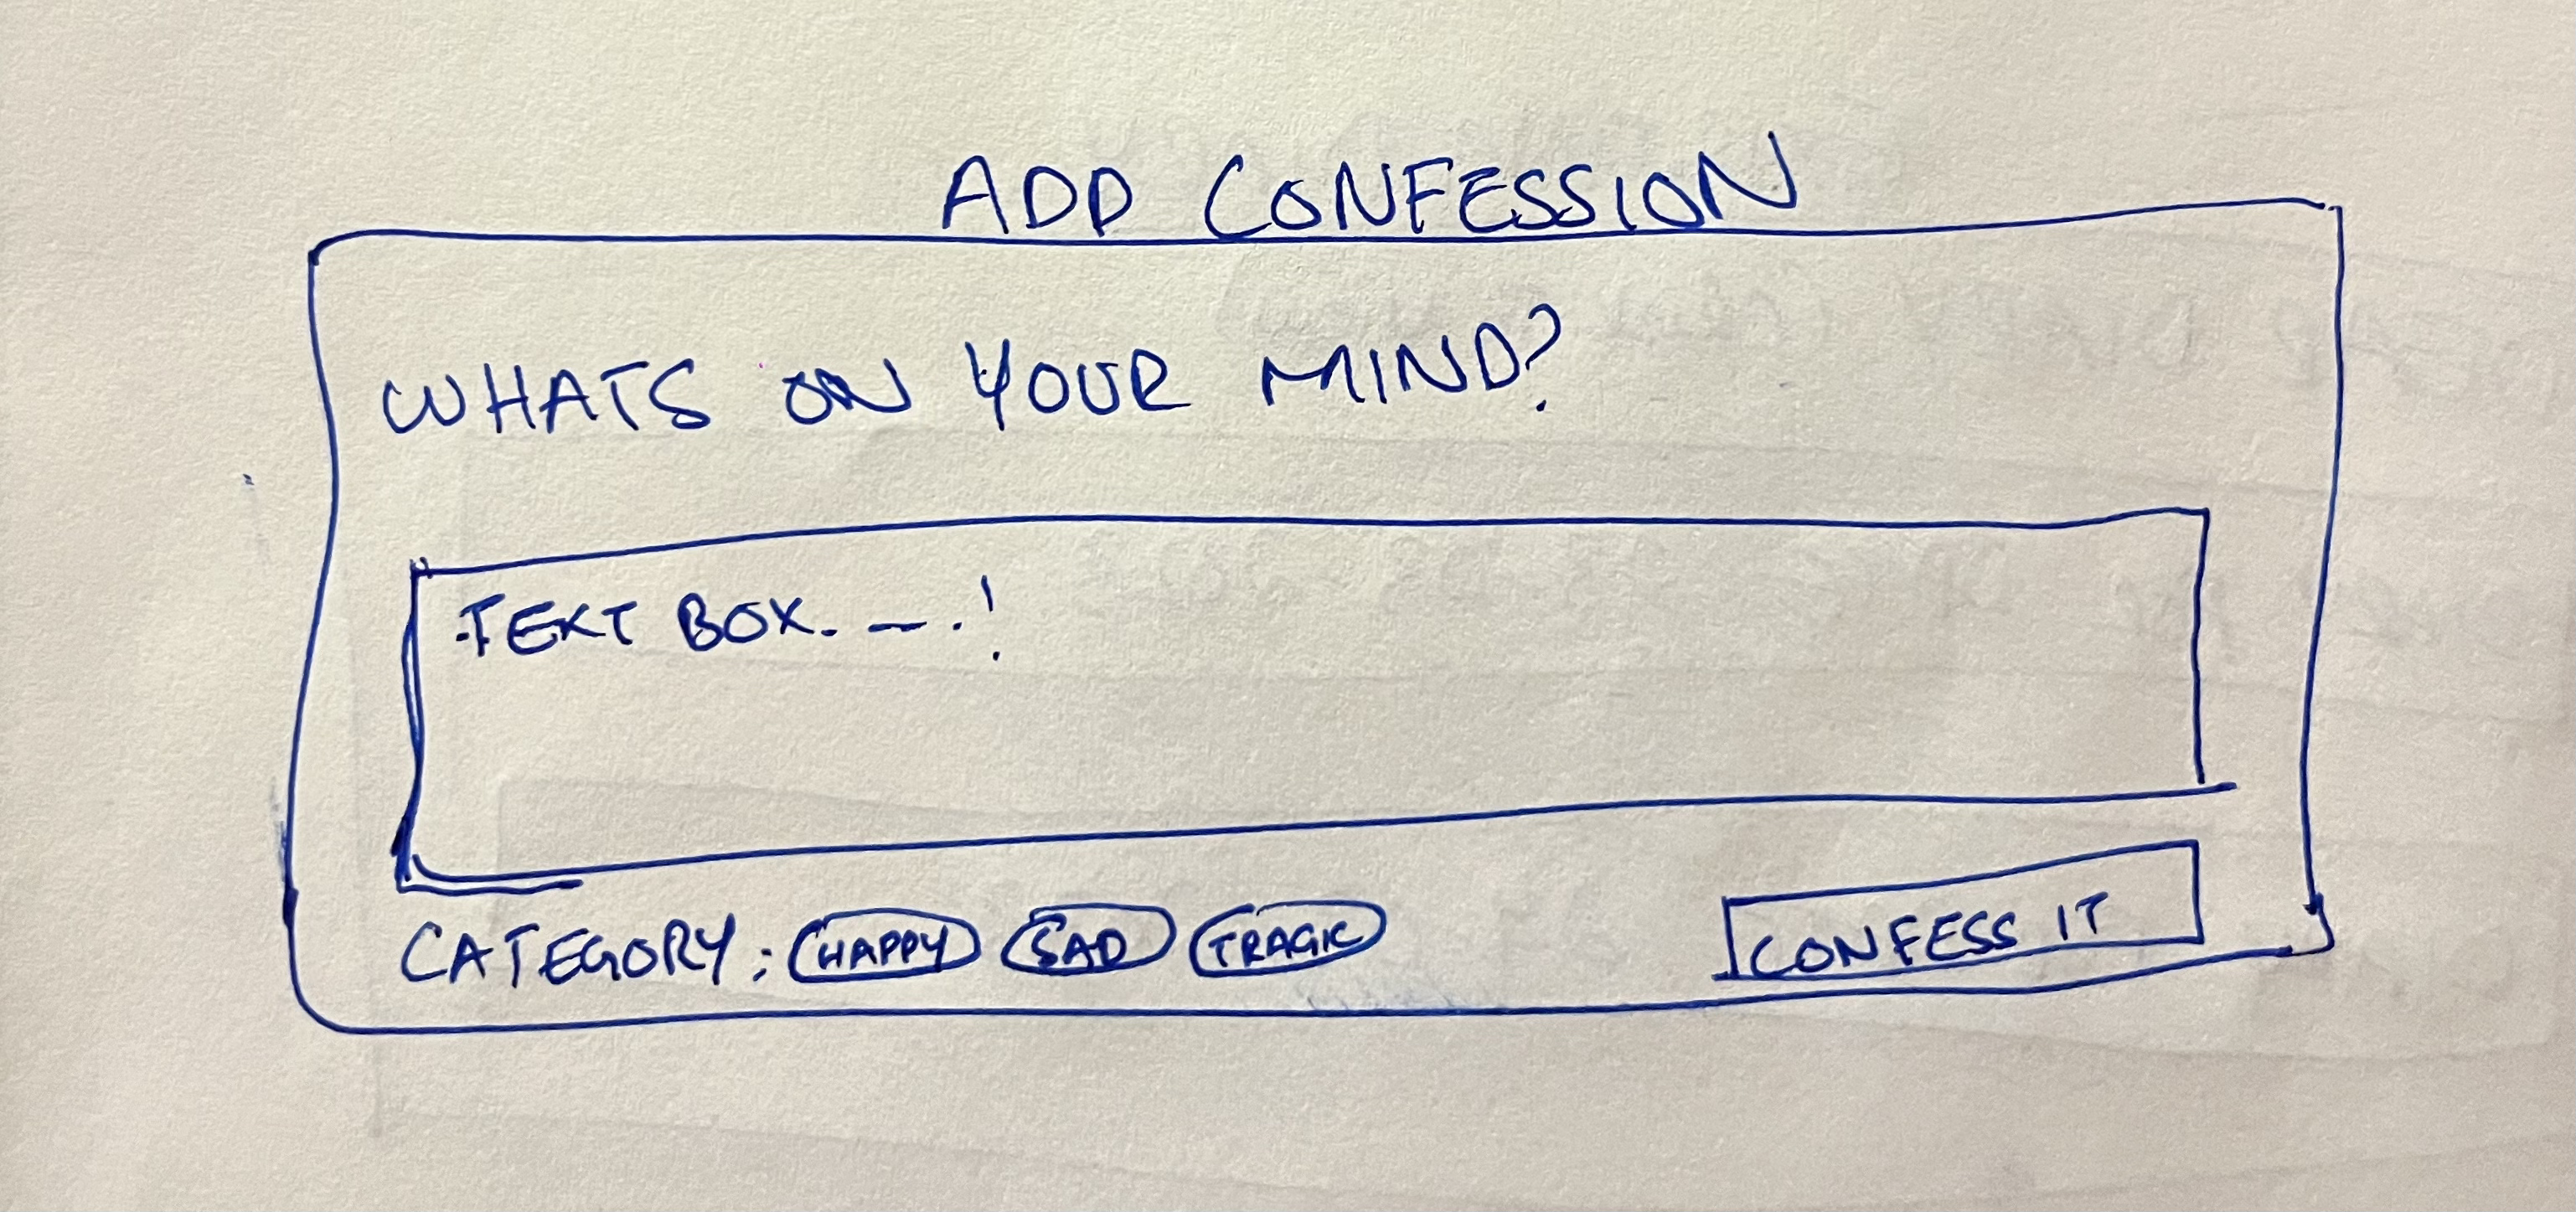 ADD CONFESSION
WHATS ON YOUR MIND?
TEXT BOX. _ . !
CATEGORY : HAPPY SAD TRAGIC CONFESS IT